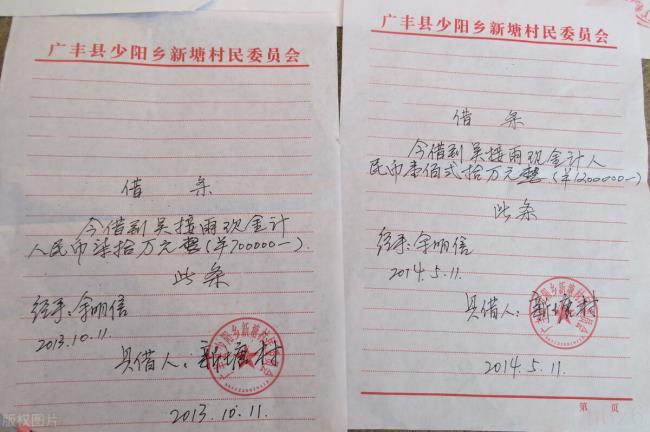 广丰县少阳乡新塘村民委员会
借条
今借到吴接雨现金计
人民币柒拾万元整(¥700000一).
此条
经手:余明信
2013.10.11.
具借人:新塘村
2013.10.11.
广丰县少阳乡新塘村民委员会
借条
今借到吴接雨现金计人
民币壹佰弍拾万元整(¥1200000一)
此条
经手:余明信
2014.5.11.
具借人:新塘村
2014.5.11.
第 页
版权图片